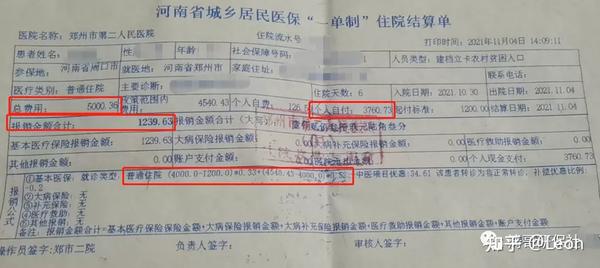 河南省城乡居民医保“一单制”住院结算单
医院名称: 郑州市第二人民医院 住院流水号 打印时间: 2021年11月04日 14:09:11
患者姓名: 性别 年龄 社会保障号码: 人员类型: 建档立卡农村贫困人口
参保地: 河南省周口市 就医地: 河南省郑州市 家庭住址:
医疗类别: 普通住院 主要诊断: 住院天数: 6 入院日期: 2021.10.30 出院日期: 2021.11.04
总费用: 5000.36 政策范围内费用: 4540.43 个人自费: 个人自付: 3760.73 起付标准: 1200.00 结算日期: 2021.11.04
报销金额合计: 1239.63 报销金额合计
基本医疗报销金额: 1239.63 大病保险报销金额: 大病补充保险报销金额: 0.00 医疗救助报销金额: 0.00
其他报销金额: 0.00 账户支付金额: 0.00 个人现金支付: 3760.73
报销公式 ①基本医保: 就诊类型: 普通住院 (4000.0-1200.0)*0.33+(4540.43-4000.0)* 中医项目优惠: 34.61 该患者转诊为非正常转诊: 补偿优惠比例:
-0.2
②大病保险: 无
③大病补充保险: 无
④医疗救助: 无
⑤其他: 无
报销金额合计=基本医疗保险报销金额+大病保险报销金额+大病补充保险报销金额+医疗救助报销金额+其他报销金额+账户支付金额
操作员签字: 郑市二院 负责人签字: 审核人签字:
知乎 @Leon